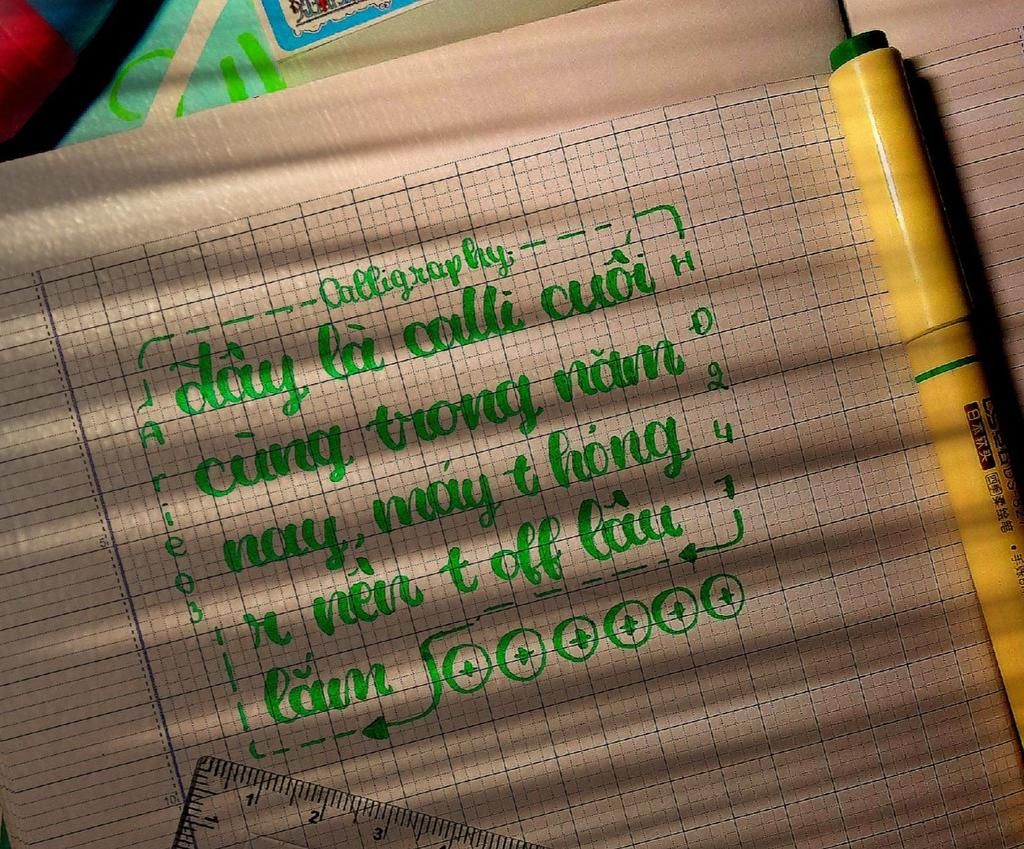 Calligraphy:
đây là calli cuối
cùng trong năm
nay, máy t hỏng
r nên t off lâu
lắm
H
D
2
4
7
1
2
3
日本软头